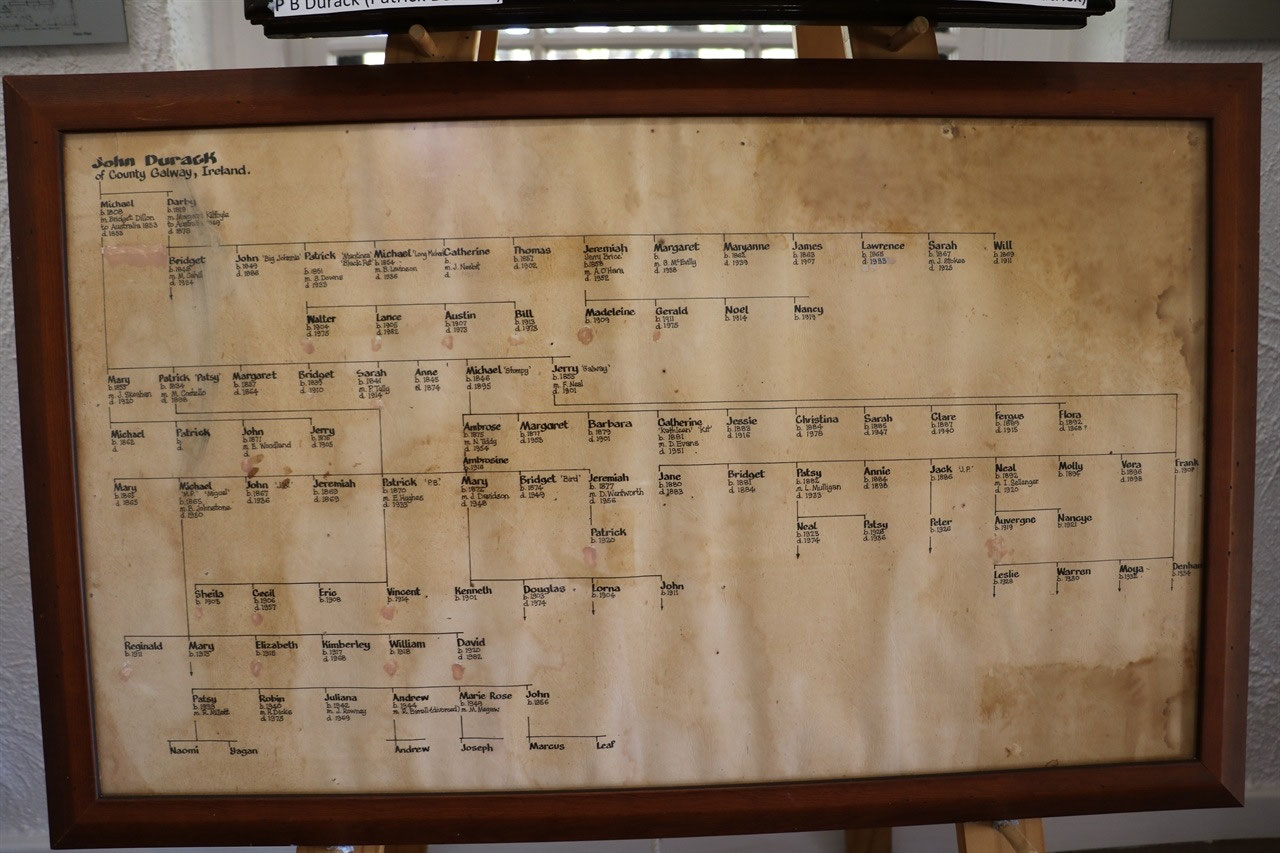 P B Durack (Patrick
John Durack
of County Galway, Ireland.
Michael
b. 1808
m. Bridget Dillon
to Australia 1853
d. 1853
Darby
to Australia
d. 1875
Bridget
m. M. Cahill
d. 1934
John "Big Johnnie"
b. 1849
d. 1886
Patrick
"Black Pat"
b. 1851
m. S. Downs
d. 1933
Michael "Long Michael"
b. 1854
d. 1936
Catherine
b.
m. J. Nesbit
d.
Thomas
b. 1857
Jeremiah
"Jerry Brice"
m. A. O'Hara
Margaret
b.
d. 1938
Maryanne
b. 1862
d. 1939
James
b. 1863
d. 1907
Lawrence
b. 1865
d. 1933
Sarah
b. 1867
m. J. Stokes
d. 1925
Will
b. 1869
Walter
b. 1904
d. 1975
Lance
b. 1905
d. 1982
Austin
b. 1907
d. 1973
Bill
b. 1913
d. 1975
Madeleine
b. 1909
Gerald
b. 1911
d. 1975
Noel
b. 1914
Nancy
b. 1919
Mary
d. 1920
Patrick "Patsy"
b. 1834
m. M. Costello
d. 1898
Margaret
b. 1837
d. 1864
Bridget
b. 1839
d. 1910
Sarah
b. 1841
m. P. Tully
d. 1914
Anne
b. 1845
d. 1874
Michael "Stumpy"
b. 1846
d. 1895
Jerry "Galway"
b. 1853
m. F. Neal
d. 1901
Michael
b. 1863
d.
Patrick
b.
d.
John
b. 1871
m. E. Woodland
d.
Jerry
Ambrose
b. 1875
m. N. Tiddy
d. 1954
Ambrosine
Margaret
b. 1877
d. 1953
Barbara
b. 1879
d. 1901
Catherine
"Kathleen" "Kit"
b. 1881
m. D. Evans
d. 1951
Jessie
b. 1883
d. 1916
Christina
b. 1884
d. 1978
Sarah
b. 1885
d. 1947
Clare
b. 1887
d. 1940
Fergus
b. 1889
d. 1915
Flora
b. 1892
d. 1968?
Mary
b. 1863
d. 1865
Michael
"M.P." "Miguel"
b. 1865
m. B. Johnstone
d. 1950
John
b. 1867
d. 1936
Jeremiah
b. 1869
d. 1869
Patrick "P.B."
b. 1870
m. E. Hughes
d. 1933
Mary
b. 1872
m. J. Davidson
d. 1948
Bridget "Bird"
b. 1874
d. 1949
Jeremiah
b. 1877
m. D. Wentworth
d. 1956
Jane
b. 1880
d. 1883
Bridget
b. 1881
d. 1884
Patsy
b. 1882
m. L. Mulligan
d. 1933
Annie
b. 1884
d. 1898
Jack "J.P."
b. 1886
Neal
b. 1892
m. I. Sellanger
d. 1920
Molly
b. 1895
Vera
b. 1896
d. 1898
Frank
Patrick
b. 1920
Neal
b. 1923
d. 1974
Patsy
d. 1986
Peter
b. 1926
Auvergne
b. 1919
Nancye
b. 1921
Leslie
b. 1928
Warren
b. 1930
Moya
b. 1932
Denham
b. 1934
Sheila
b. 1903
Cecil
b. 1906
d. 1957
Eric
b. 1908
Vincent
b. 1914
Kenneth
b. 1901
Douglas
b. 1903
d. 1974
Lorna
b. 1904
John
b. 1911
Reginald
b. 1911
Mary
b. 1913
Elizabeth
b. 1915
Kimberley
b. 1917
d. 1968
William
b. 1918
David
b. 1920
d. 1982
Patsy
m. R. Millett
Robin
b. 1940
m. R. Dicks
d. 1975
Juliana
b. 1942
m. J. Rowney
d. 1969
Andrew
b. 1944
m. R. Burrell (divorced)
Marie Rose
b. 1949
m. M. Megaw
John
Naomi
Yagan
Andrew
Joseph
Marcus
Leaf